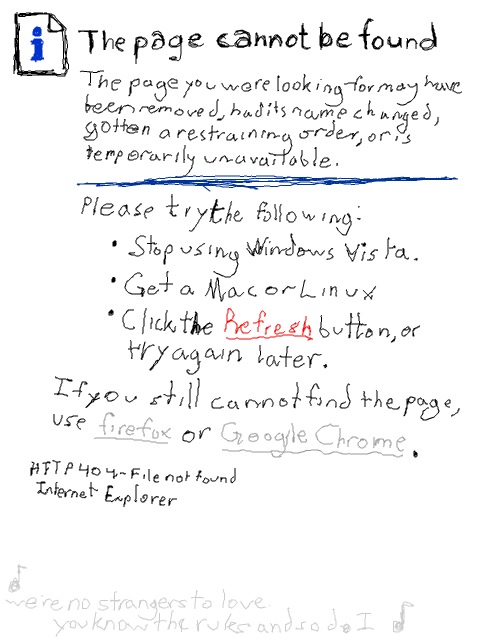 i
The page cannot be found
The page you were looking for may have
been removed, had its name changed,
gotten a restraining order, or is
temporarily unavailable.
Please try the following:
• Stop using Windows Vista.
• Get a Mac or Linux
• Click the Refresh button, or
try again later.
If you still cannot find the page,
use firefox or Google Chrome.
HTTP 404-File not found
Internet Explorer
♪ we're no strangers to love
you know the rules and so do I ♪